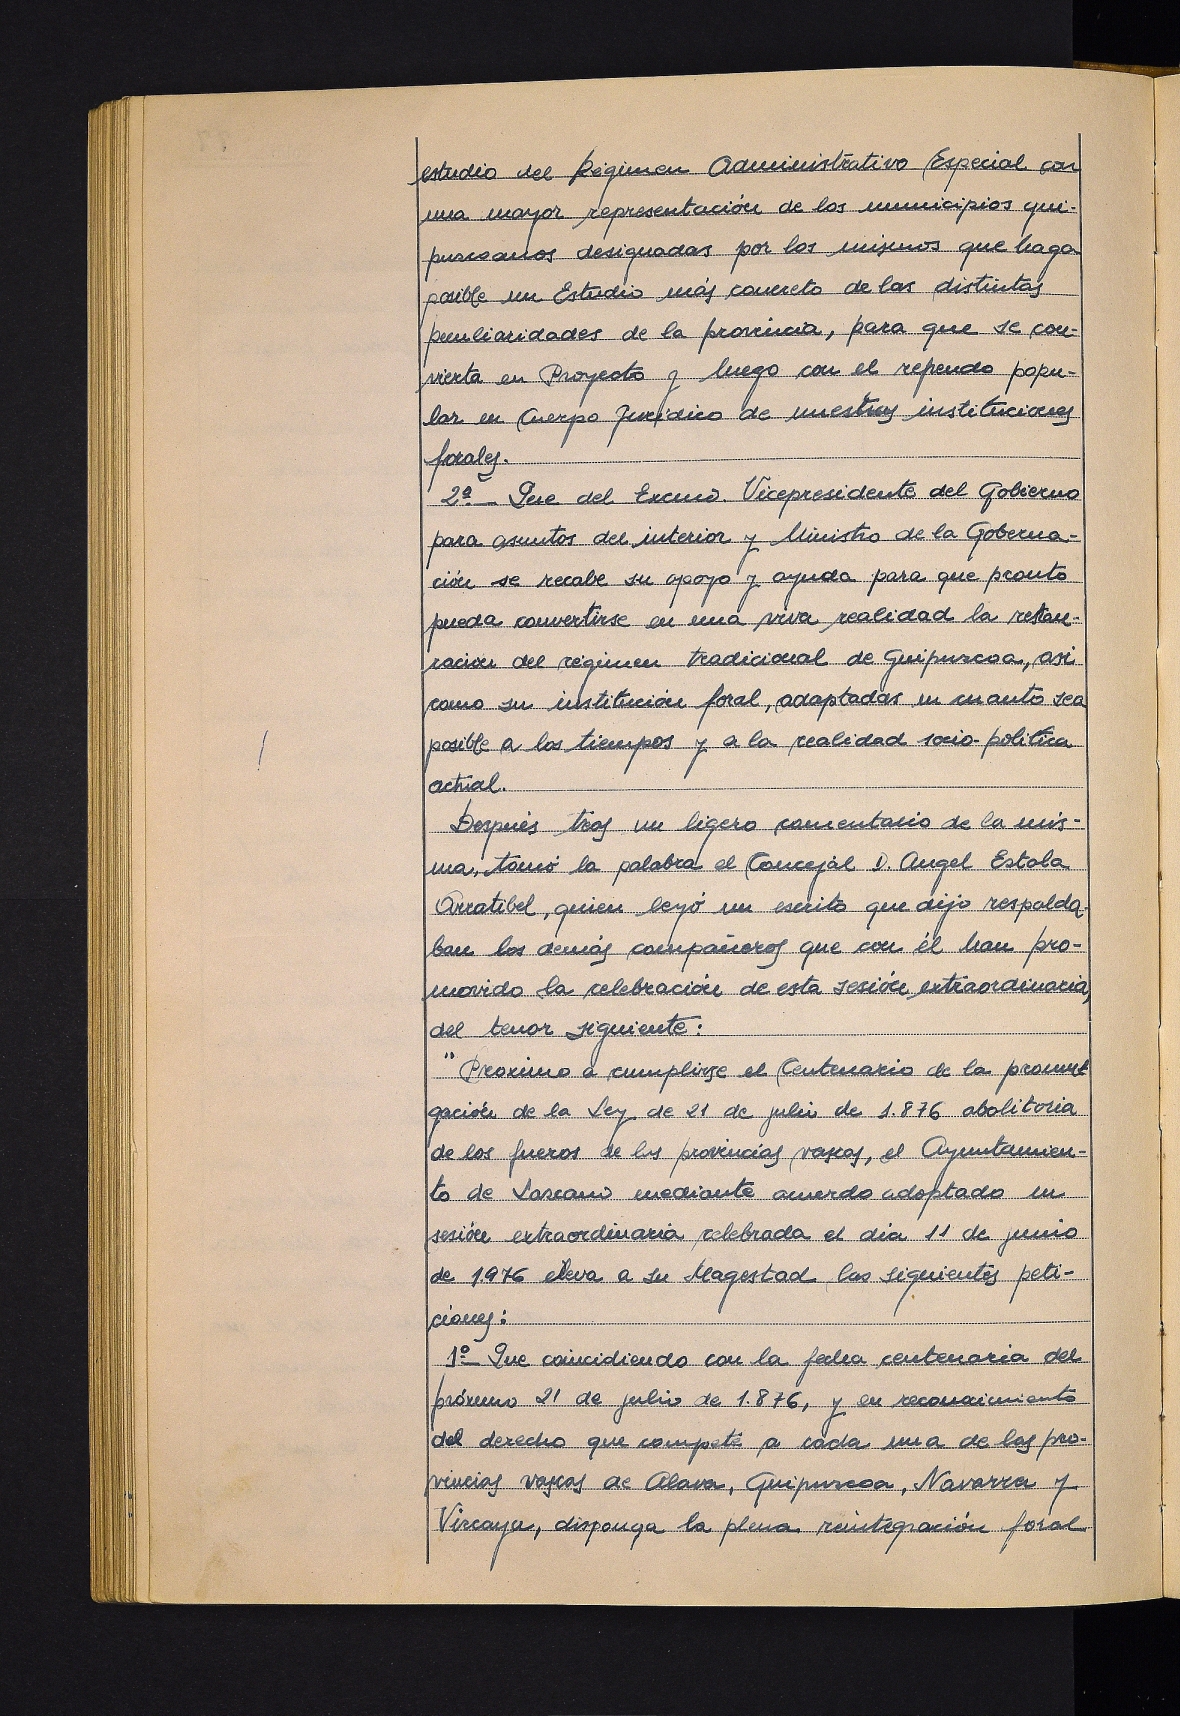 estudio del Régimen Administrativo Especial con
una mayor representación de los municipios gui-
puzcoanos designadas por los mismos que haga
posible un Estudio más concreto de las distintas
peculiaridades de la provincia, para que se con-
vierta en Proyecto y luego con el refrendo popu-
lar en Cuerpo Jurídico de nuestras instituciones
forales.
2º - Que del Excmo. Vicepresidente del Gobierno
para asuntos del interior y Ministro de la Goberna-
ción se recabe su apoyo y ayuda para que pronto
pueda convertirse en una viva realidad la restau-
ración del régimen tradicional de Guipuzcoa, asi
como su institución foral, adaptadas en cuanto sea
posible a los tiempos y a la realidad socio-politica
actual.
Después tras un ligero comentario de la mis-
ma, tomó la palabra el Concejal D. Angel Estala
Arratibel, quien leyó un escrito que dijo respalda-
ban los demás compañeros que con él han pro-
movido la celebración de esta sesión extraordinaria,
del tenor siguiente:
"Proximo a cumplirse el Centenario de la promul
gación de la Ley de 21 de julio de 1.876 abolitoria
de los fueros de las provincias vascas, el Ayuntamien-
to de Lazcano mediante acuerdo adoptado en
sesión extraordinaria celebrada el dia 11 de junio
de 1976 eleva a su Magestad las siguientes peti-
ciones:
1º - Que coincidiendo con la fecha centenaria del
próximo 21 de julio de 1.876, y en reconocimiento
del derecho que compete a cada una de las pro-
vincias vascas de Alava, Guipuzcoa, Navarra y
Vizcaya, disponga la plena reintegración foral